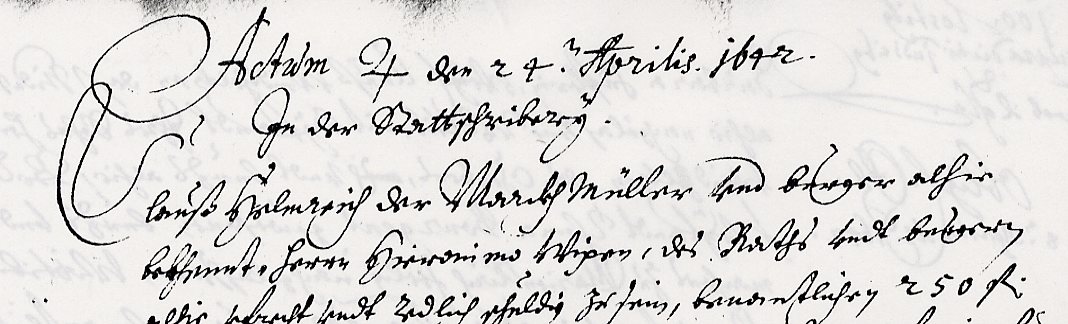 Actum ♃ den 24.ⁿ Aprilis. 1642.
In der Stattschribery.
Clauß Helmreich der Marckh Müller vnd burger alhie
bekhennt, herrn Hieronimo Wixen, des Raths vndt burgern
alhie vfrecht vndt redlich schuldig ze sein, benantlichen 250 fl: